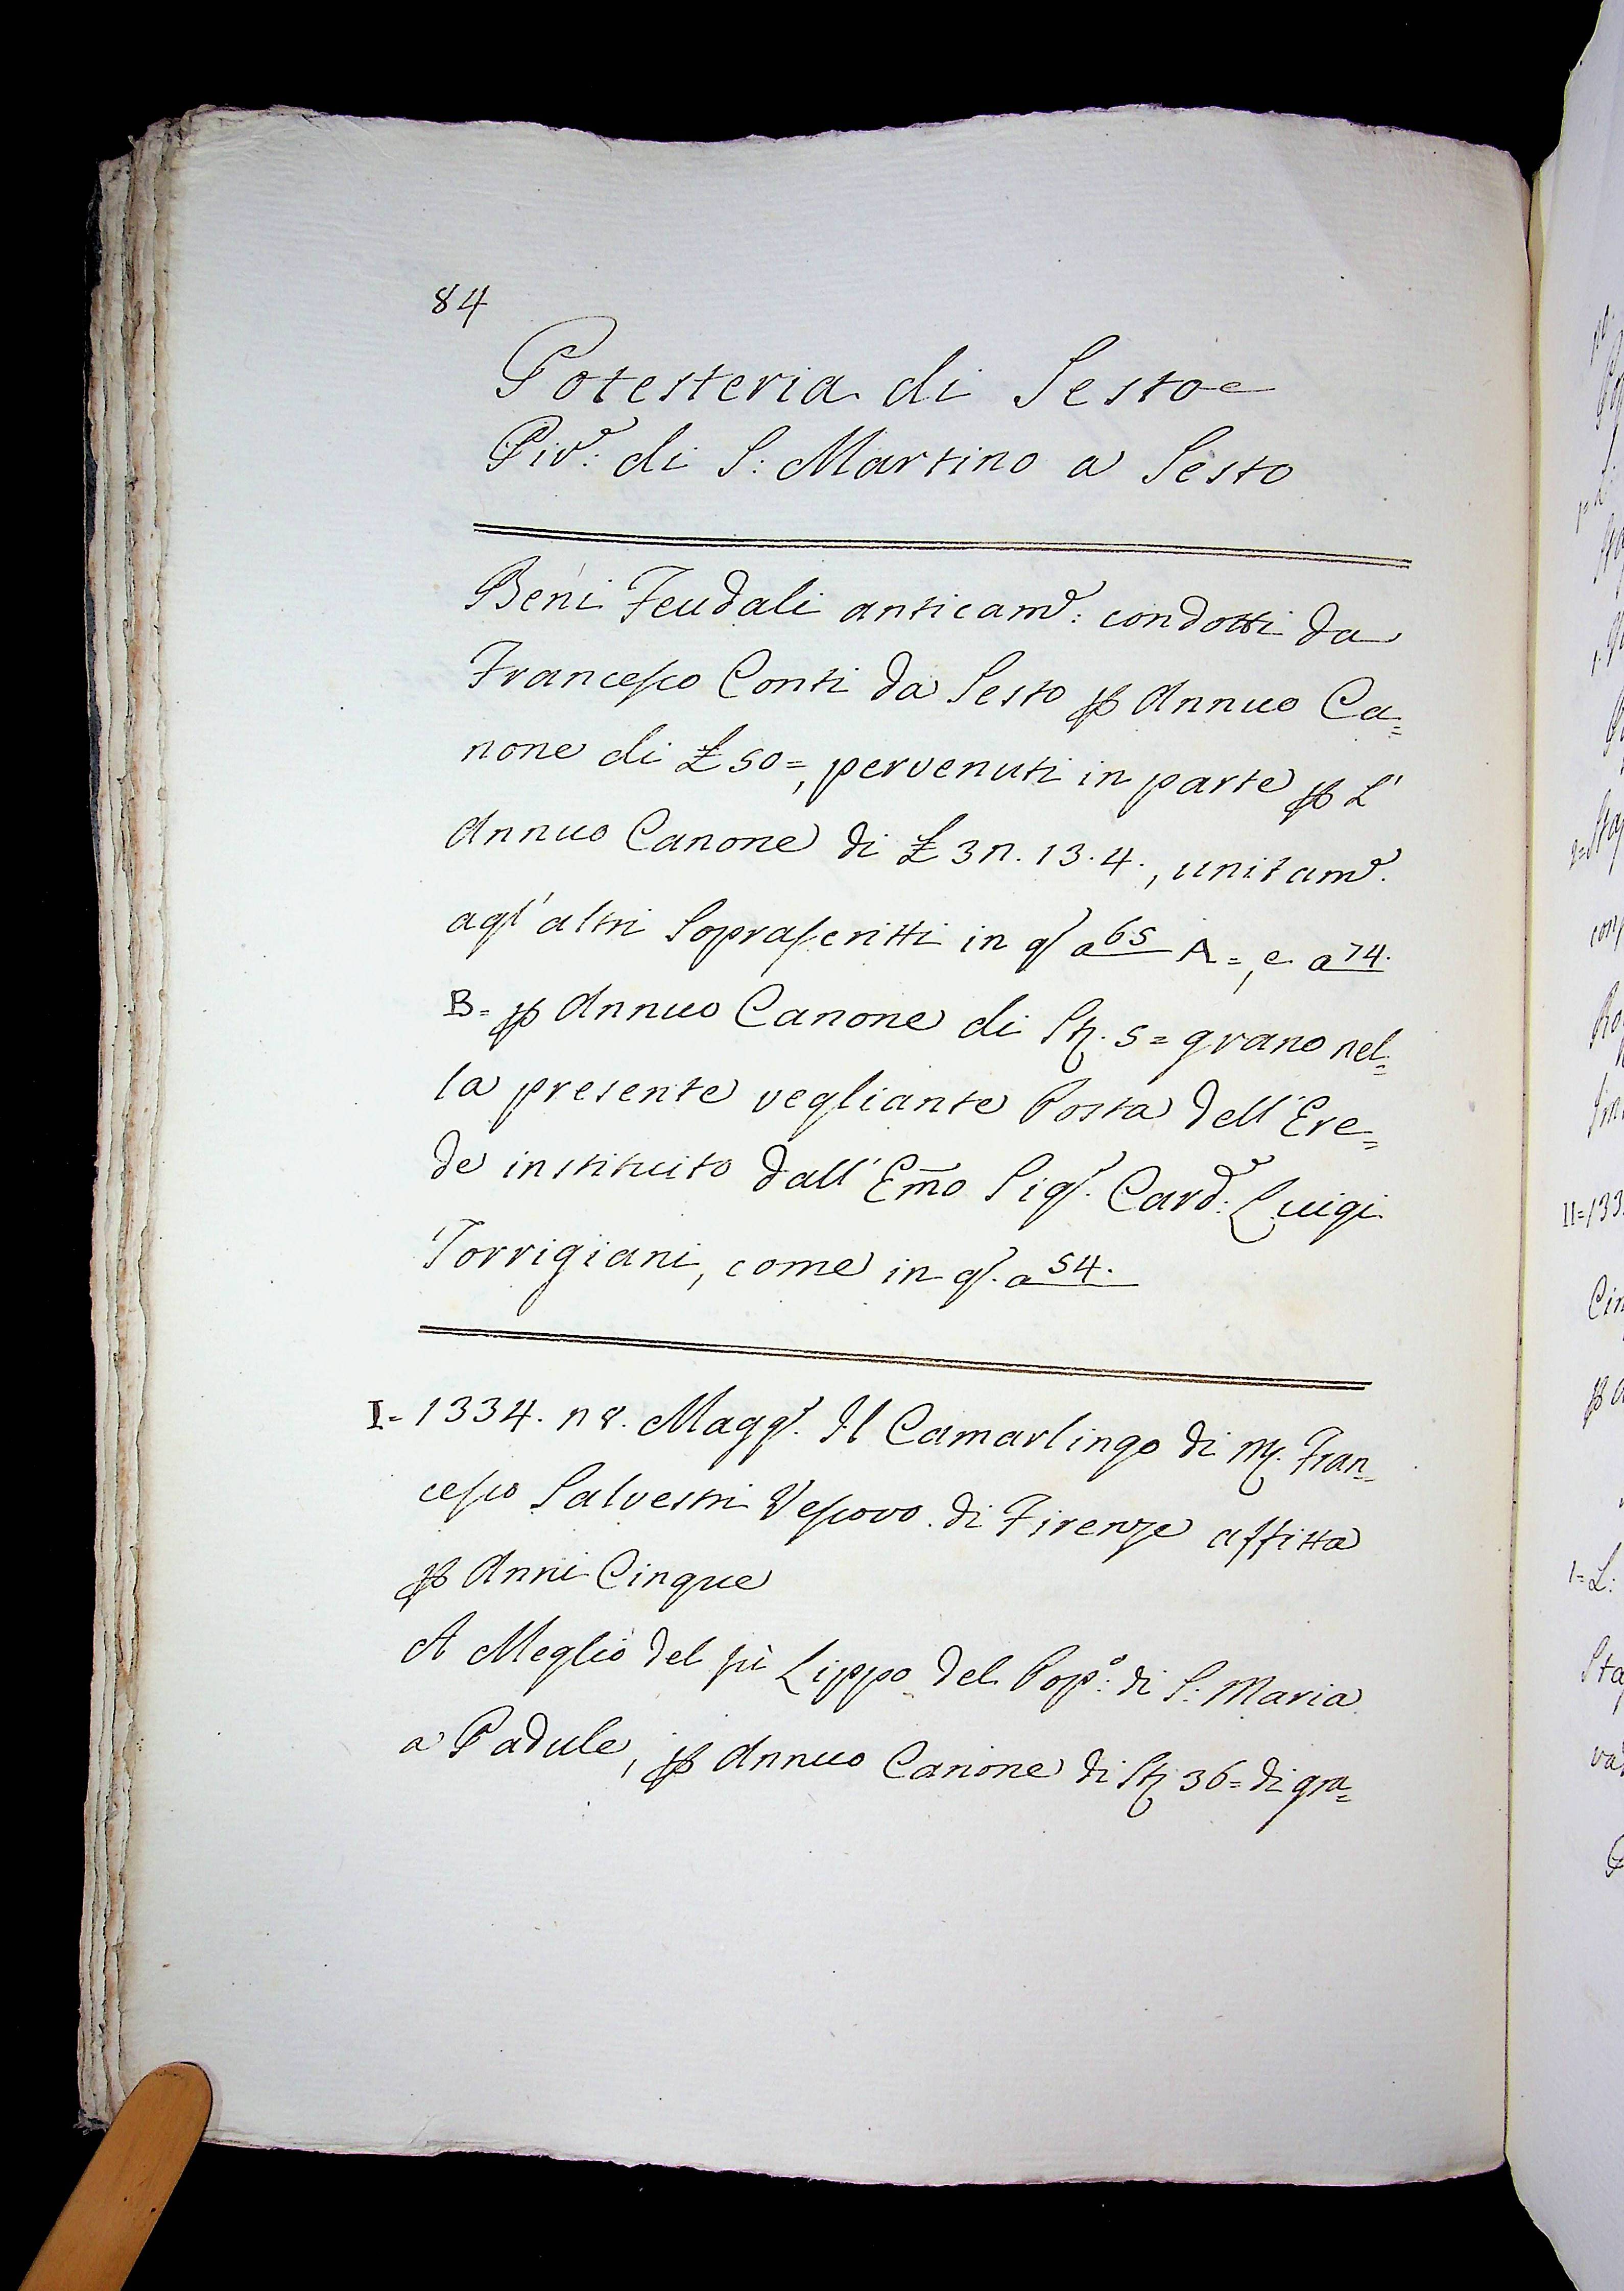 84
Potesteria di Sesto
Piv.e di S: Martino a Sesto
Beni Feudali anticam.e: condotti da
Francesco Conti da Sesto p Annuo Ca=
none di £ 50=, pervenuti in parte p L'
Annuo Canone di £ 32. 13. 4., unitam.e
agl'altri Soprascritti in q.o a 65 A=, e a 74.
B= p Annuo Canone di St. 5= grano nel=
la presente vegliante Posta dell'Ere=
de instituito dall'Em̃o Sig.r Card.e: Luigi
Torrigiani, come in q.o a 54.
I= 1334. 28. Magg.o Il Camarlingo di M. Fran=
cesco Salvestri Vescovo di Firenze affitta
p Anni Cinque
A Meglio del fù Lippo del Pop.o: di S: Maria
a Padule, p Annuo Canone di St 36= di gra=